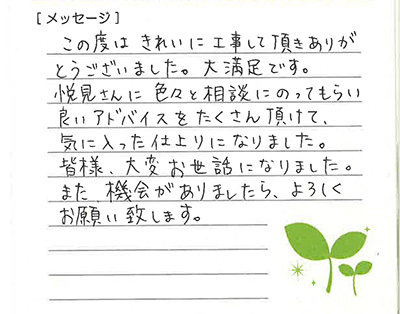 [メッセージ]
この度は きれいに 工事して頂きありが
とうございました。大満足です。
悦見さんに 色々と相談にのってもらい
良いアドバイスをたくさん頂けて、
気に入った仕上りになりました。
皆様、大変お世話になりました。
また 機会がありましたら、よろしく
お願い致します。